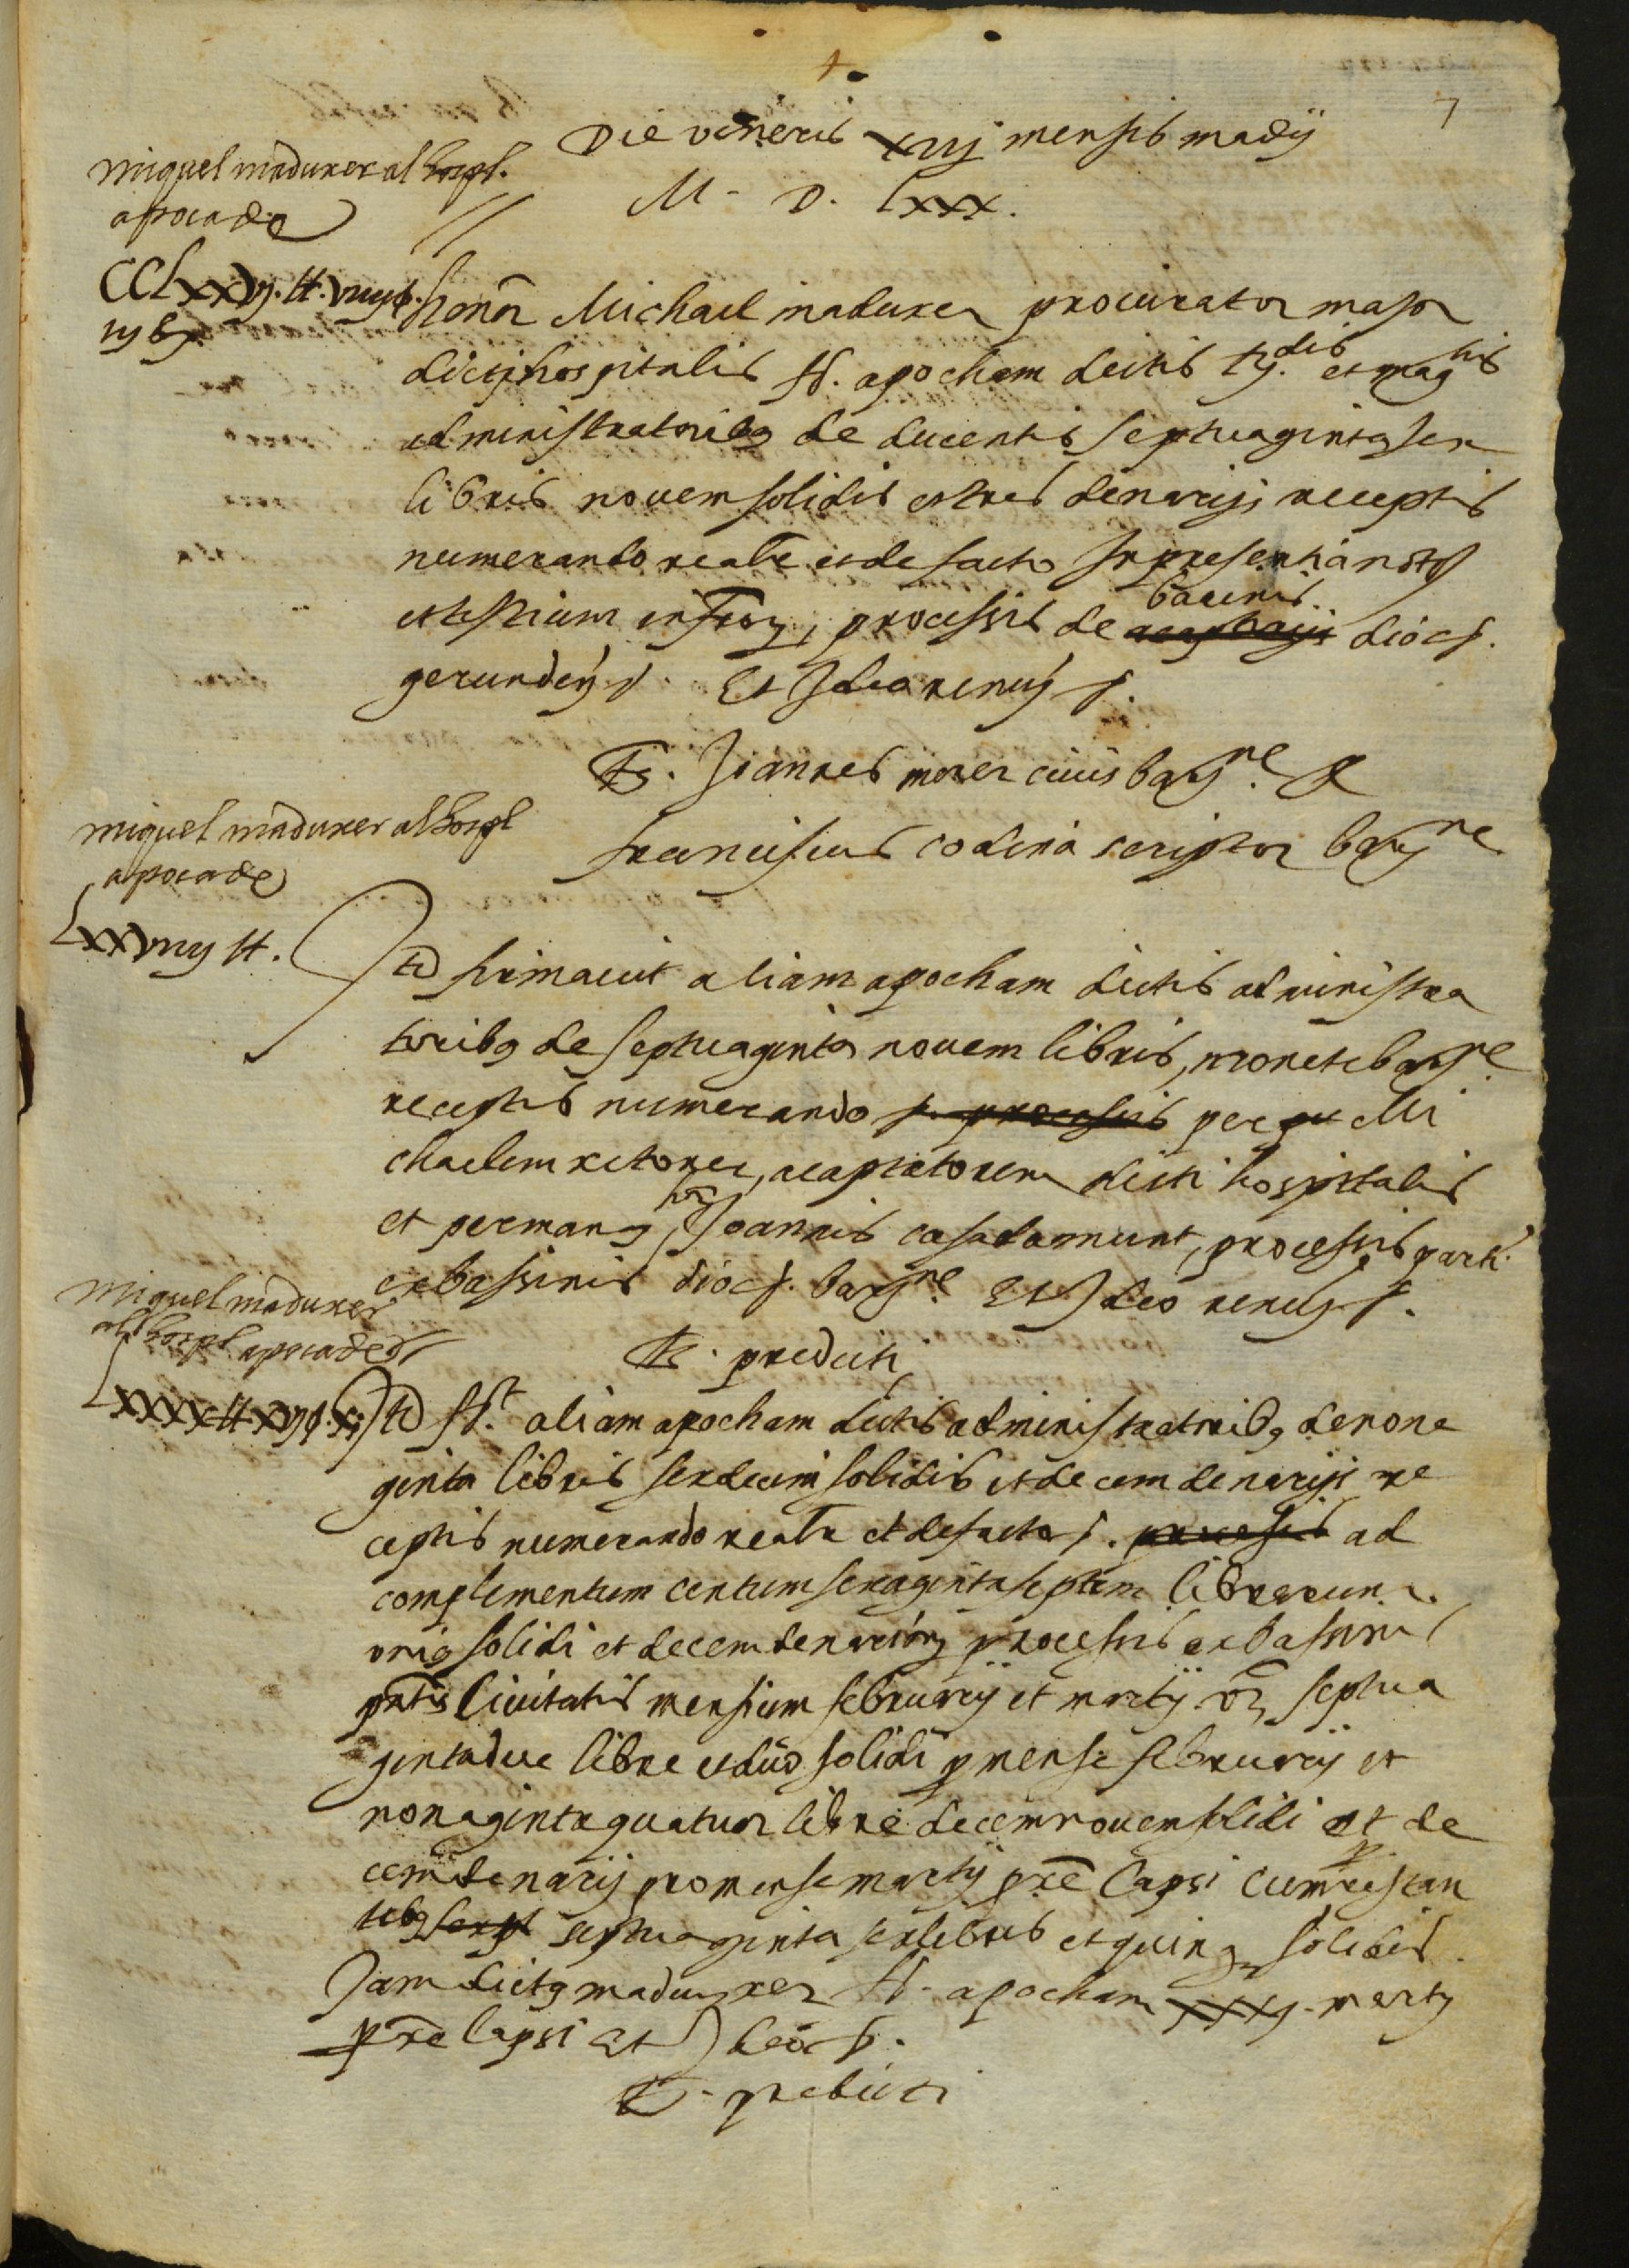 7
Die veneris xiij mensis madij
M. D. Lxxx.
Miquel madurer al hospl.
apoca de
CCLxxvj. ll. viiij s.
iij d
honor. Michael madurer procurator major
dicti hospitalis ff. apocham dictis Rdis. et magcis
administratoribq de ducentis septuaginta sex
libris novem solidis et tres denarijs receptis
numerando realr et de facto In presentia notij
et testium infror, processis de acaptarijs bacinis diocs.
gerunden s. Et Ideo renuns s.
Ts. Joannes morer civis barne. et
Franciscus codina scriptor barne
Miquel madurer al hospl
apoca de
Lxxviiij ll.
Itē firmavit aliam apocham dictis administra
toribq de septuaginta novem libris, monete barne.
receptis numerando s. processis per Mi
chaelem, acaptatorem dicti hospitalis
et per manq hon. Joannis casadamunt, processis parti.
ex bassinis diocs. barne. Et Ideo renuns s.
Ts. predicti
Miquel madurer
al hospl apoca de
Lxxxx ll xvj s. x.
Itē ff.t aliam apocham dictis administratoribq de nona
ginta libris sexdecim solidis et decem denarijs re
ceptis numerando realr et de facto s. processis ad
complementum centum sexaginta septem librarum
uniq solidi et decem denarior processis ex bassinis
pntis Civitatis mensium februarij et martij. vz. septua
ginta due libre et duo solidi p mense februarij et
nonaginta quatuor libre decem novem solidi et de
cem denarij pro mense martij pre lapsi cum restan
tibq sexpt septuaginta sex libris et quinq solidis
Jam dictq madurer ff. apocham xxxj. martij
pre lapsi Et Ideo s.
Ts. predicti